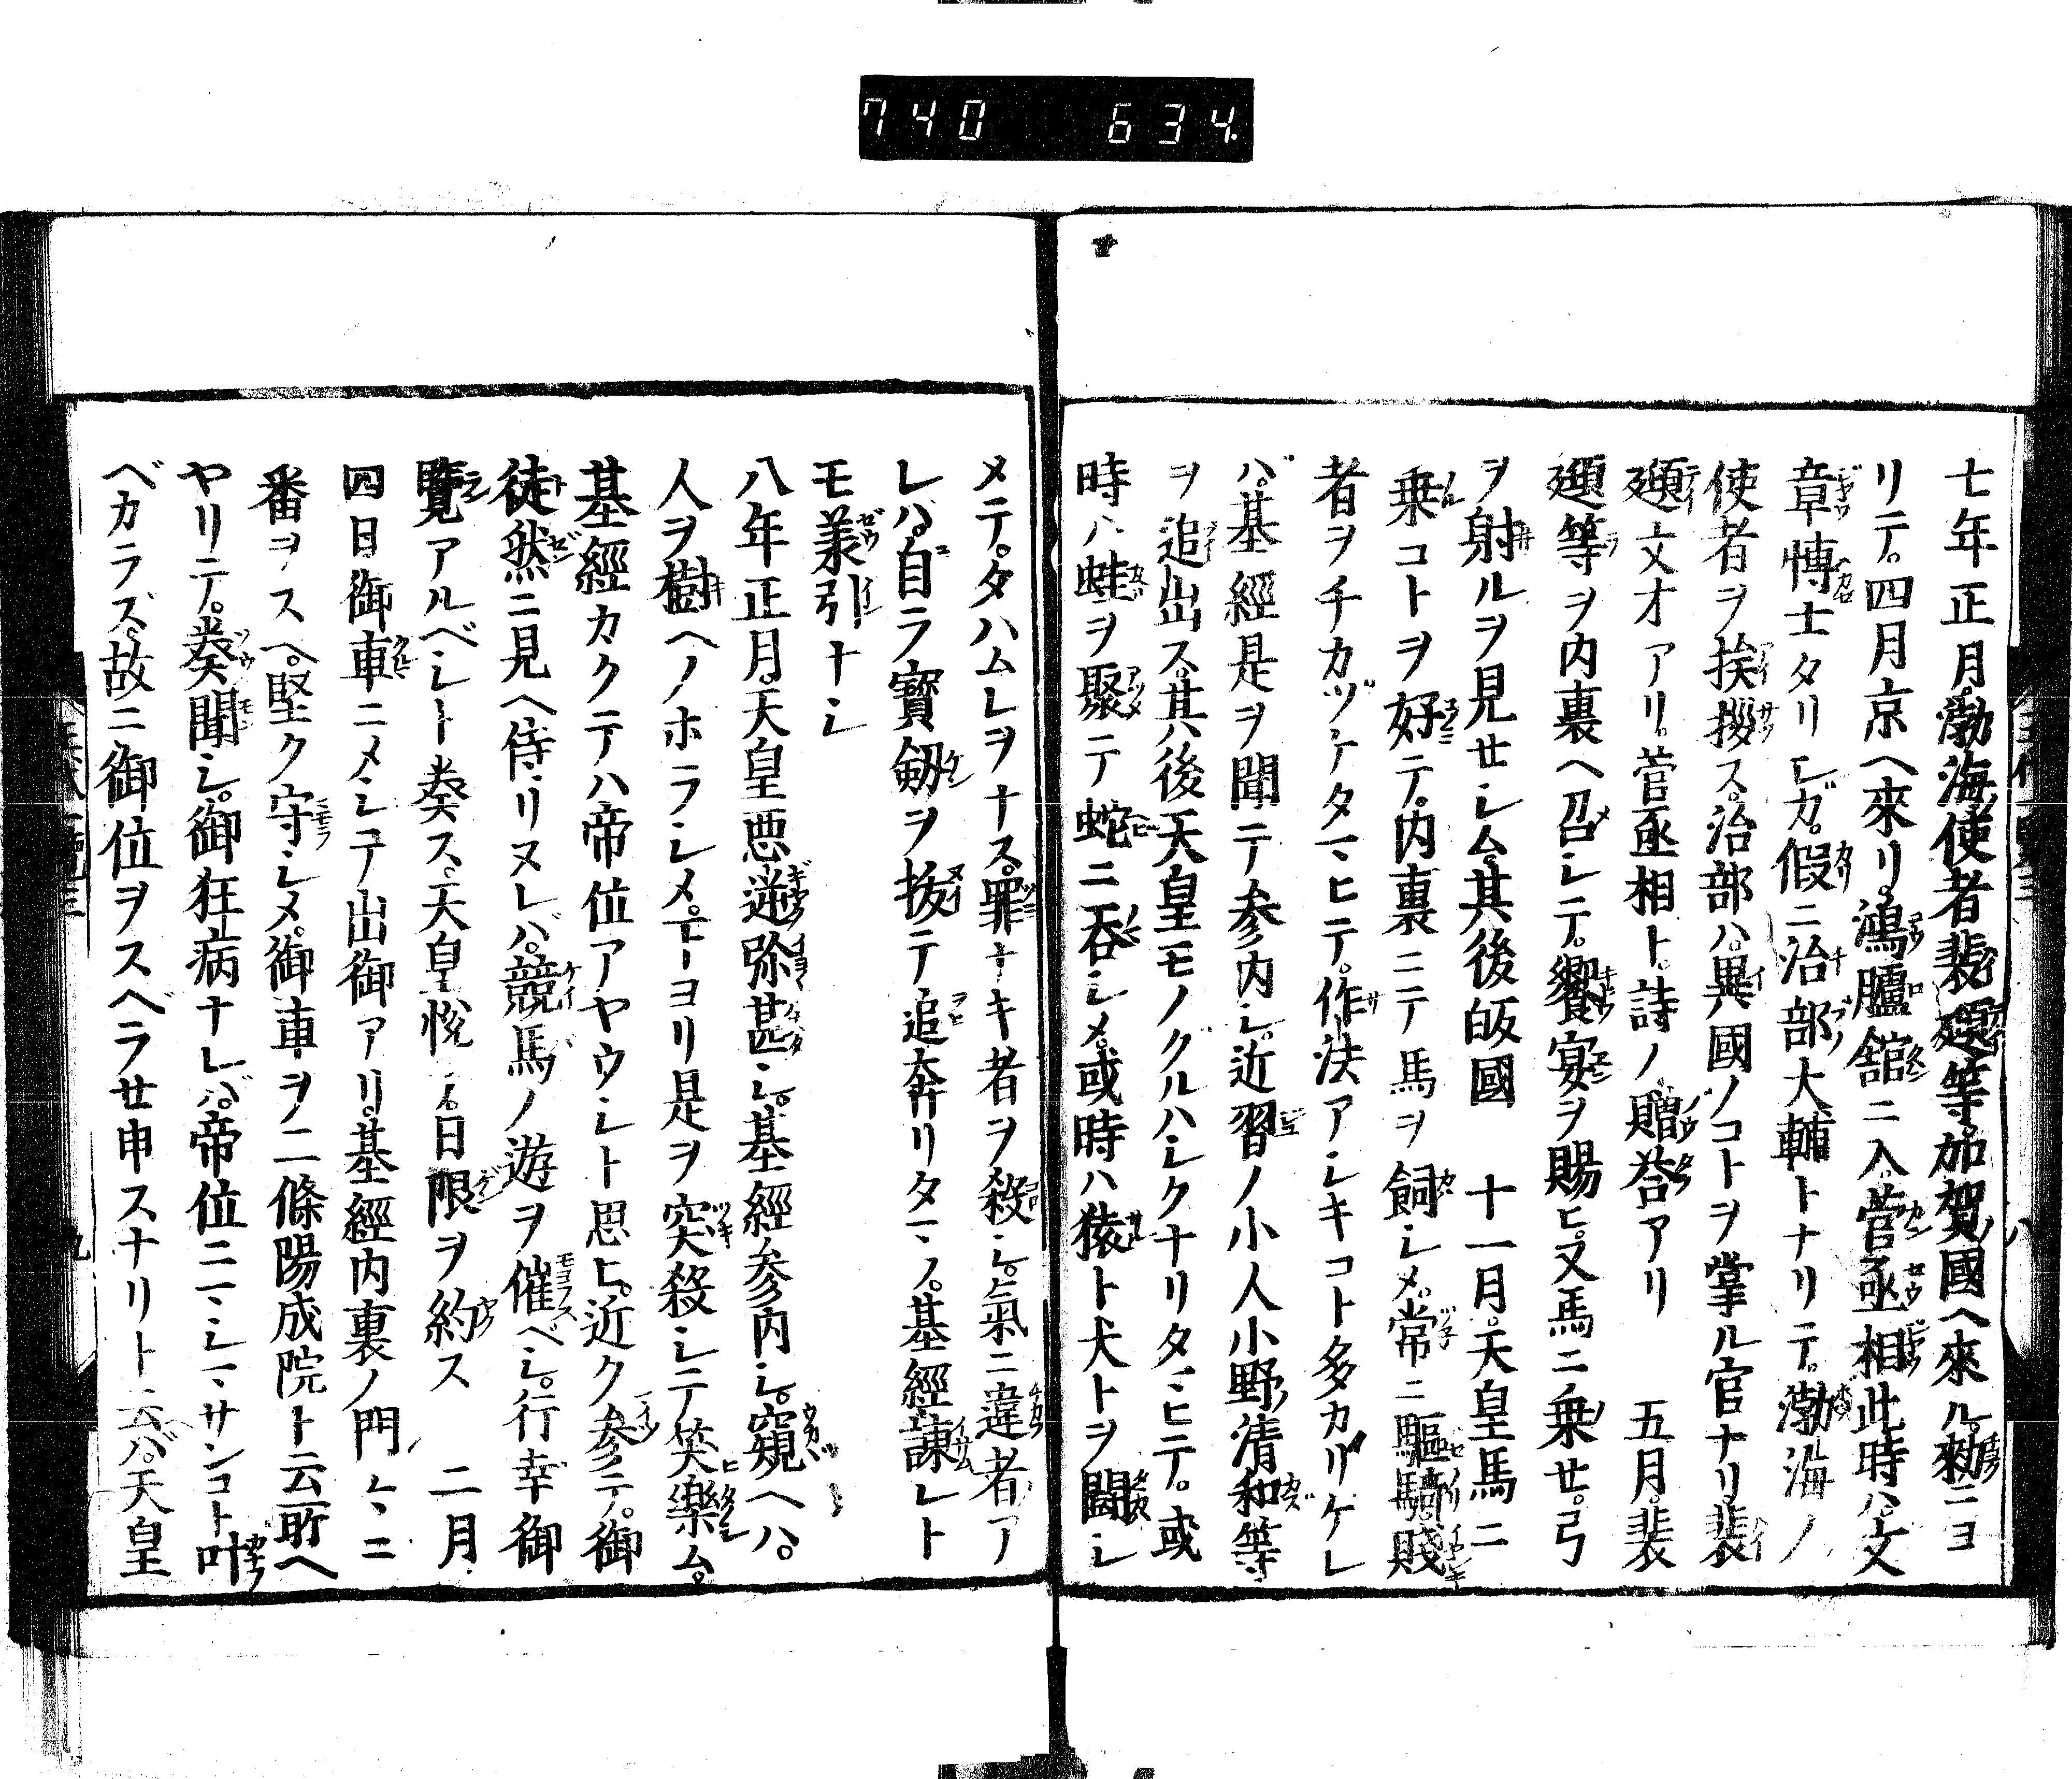 740 634.
七年正月。渤海使者裴頲等。加賀國ヘ來ル。勅ニヨ
リテ。四月京ヘ來リ。鴻臚舘ニ入。菅丞相此時ハ。文
章博士タリシガ。假ニ治部大輔トナリテ。渤海ノ
使者ヲ挨拶ス。治部ハ。異國ノコトヲ掌ル官ナリ。裴
頲文才アリ。菅丞相ト。詩ノ贈荅アリ 五月。裴
頲等ヲ内裏ヘ召シテ。饗宴ヲ賜ヒ。又馬ニ乗セ。弓
ヲ射ルヲ見セシム。其後皈國 十一月。天皇馬ニ
乗コトヲ好テ。内裏ニテ馬ヲ飼シメ。常ニ驅騎。賤
者ヲチカヅケタマヒテ。作法アシキコト多カリケレ
バ。基經是ヲ聞テ参内シ。近習ノ小人小野清和等
ヲ追出ス。其後天皇モノグルハシクナリタマヒテ。或
時ハ蛙ヲ聚テ蛇ニ呑シメ。或時ハ猿ト犬トヲ鬪シ
メテ。タハムレヲナス。罪ナキ者ヲ殺シ。氣ニ違者ア
レハ。自ラ寶劔ヲ抜テ追奔リタマフ。基經諌レト
モ羕引ナシ
八年正月。天皇悪逆弥甚シ。基經参内シ。窺ヘハ。
人ヲ樹ヘノホラシメ。下ヨリ是ヲ突殺シテ笑樂ム。
基經カクテハ帝位アヤウシト思ヒ。近ク参テ。御
徒然ニ見ヘ侍リヌレバ。競馬ノ遊ヲ催ベシ。行幸御
覽アルベシト奏ス。天皇悦テ。日限ヲ約ス 二月
四日。御車ニメシテ出御アリ。基經内裏ノ門々ニ
番ヲスヘ。堅ク守シメ。御車ヲ二條陽成院ト云所ヘ
ヤリテ。奏聞シ。御狂病ナレバ。帝位ニマシマサンコト叶
ベカラズ。故ニ御位ヲスベラセ申スナリト云バ。天皇
八
九